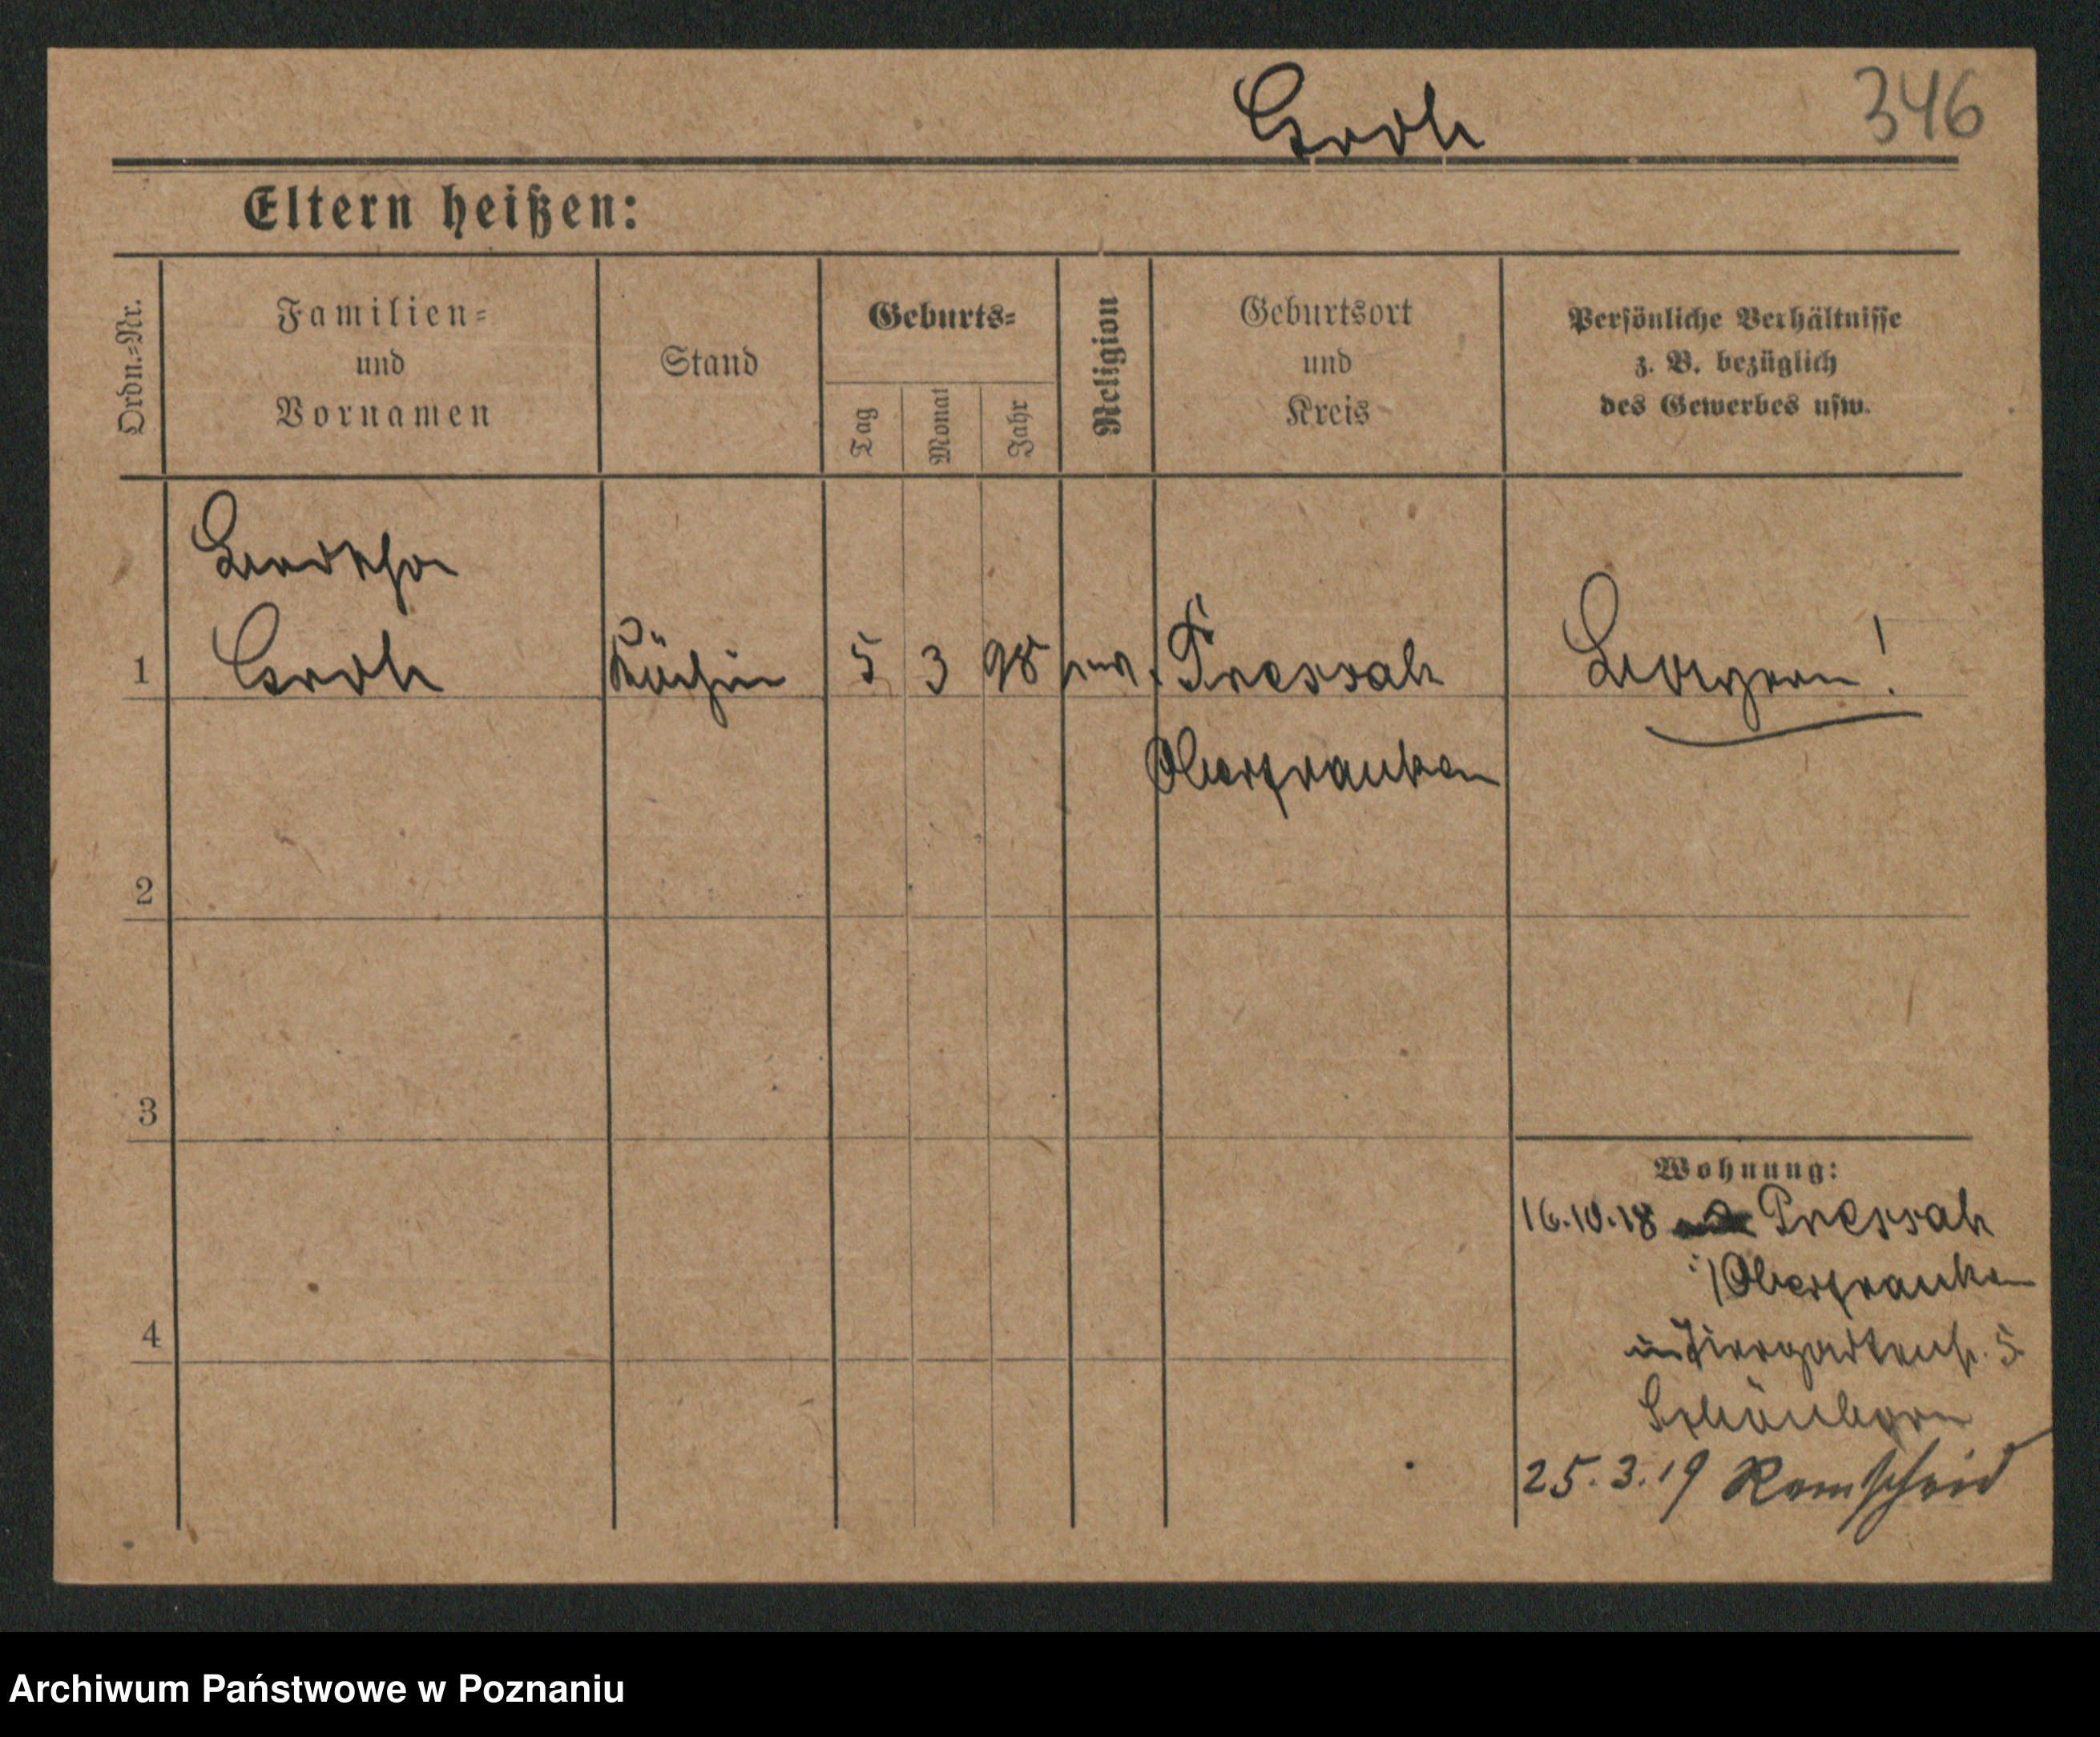 Groh
346
Eltern heißen:
Ordn.-Nr.
Familien-
und
Vornamen
Stand
Geburts-
Tag
Monat
Jahr
Religion
Geburtsort
und
Kreis
Persönliche Verhältnisse
z. B. bezüglich
des Gewerbes usw.
Groh
1
Köchin
5
3
98
Pressah
Bayern!
Oberfranken
2
3
4
Wohnung:
16.10.18 Pressah
Oberfranken
Tiergartenstr. 5
Schönborn
25.3.19 Remscheid
Archiwum Państwowe w Poznaniu